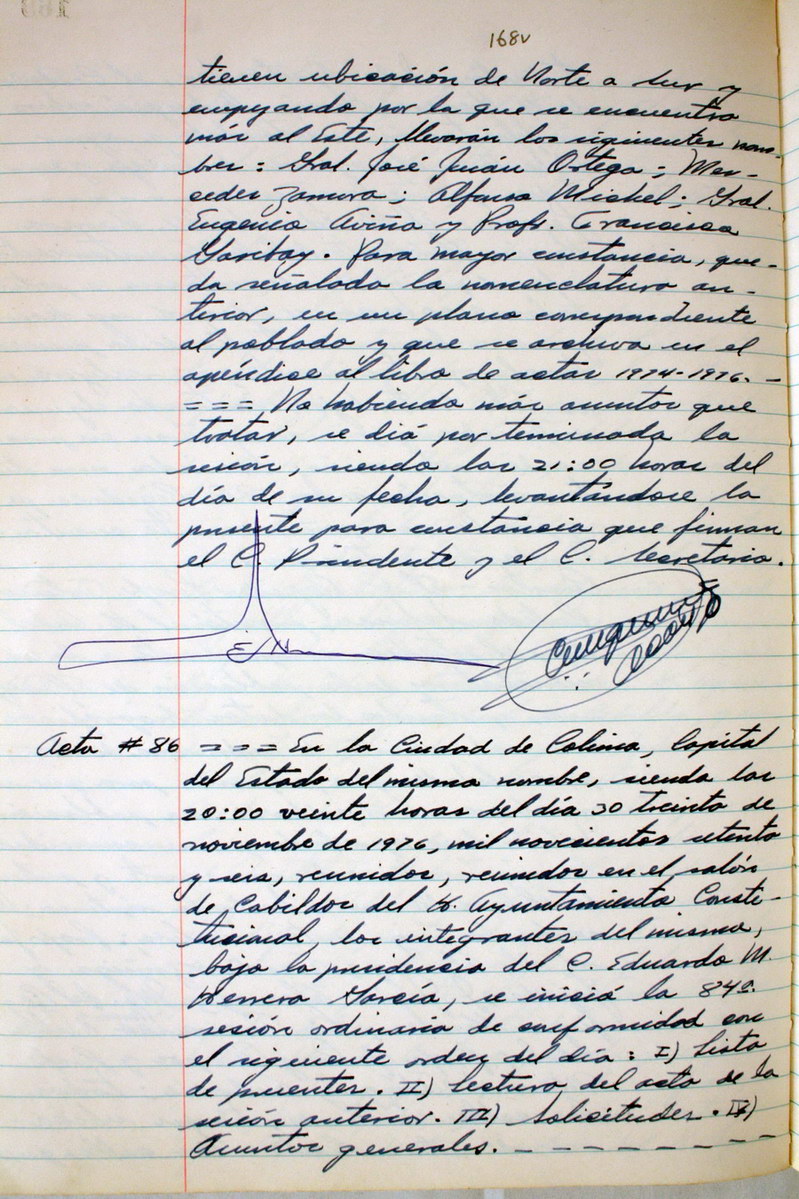 168v
tienen ubicación de Norte a Sur y
empezando por la que se encuentra
más al Este, llevarán los siguientes nom-
bres: Gral. José Juán Ortega; Mer-
cedes Zamora; Alfonso Michel; Gral.
Eugenio Aviña y Profr. Francisco
Garibay. Para mayor constancia, que-
da señalada la nomenclatura an-
terior, en un plano correspondiente
al poblado y que se archiva en el
apéndice al libro de actas 1974-1976. -
= = = No habiendo más asuntos que
tratar, se dió por terminada la
sesión, siendo las 21:00 horas del
día de su fecha, levantándose la
presente para constancia que firman
el C. Presidente y el C. Secretario.
Acta # 86 = = = En la Ciudad de Colima, Capital
del Estado del mismo nombre, siendo las
20:00 veinte horas del día 30 treinta de
noviembre de 1976, mil novecientos setenta
y seis, reunidos, reunidos en el salón
de Cabildos del H. Ayuntamiento Consti-
tucional, los integrantes del mismo,
bajo la presidencia del C. Eduardo M.
Herrera García, se inició la 84a.
sesión ordinaria de conformidad con
el siguiente orden del día: I) Lista
de presentes. II) Lectura del acta de la
sesión anterior. III) Solicitudes. IV)
Asuntos generales. - - - - - - - -